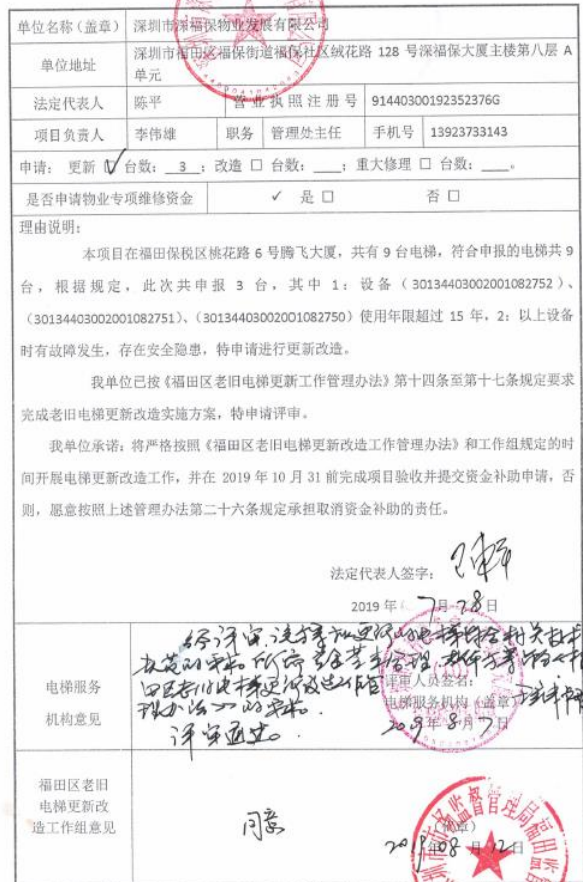 单位名称（盖章） 深圳市深福保物业发展有限公司
单位地址 深圳市福田区福保街道福保社区绒花路 128 号深福保大厦主楼第八层 A
单元
法定代表人 陈平 营业执照注册号 91440300192352376G
项目负责人 李伟雄 职务 管理处主任 手机号 13923733143
申请： 更新 ☑ 台数： 3 ；改造 口 台数： ；重大修理 口 台数： 。
是否申请物业专项维修资金 ✓ 是 口 否 口
理由说明：
本项目在福田保税区桃花路 6 号腾飞大厦，共有 9 台电梯，符合申报的电梯共 9
台，根据规定，此次共申报 3 台，其中 1：设备（30134403002001082752）、
（30134403002001082751）、（30134403002001082750）使用年限超过 15 年，2：以上设备
时有故障发生，存在安全隐患，特申请进行更新改造。
我单位已按《福田区老旧电梯更新工作管理办法》第十四条至第十七条规定要求
完成老旧电梯更新改造实施方案，特申请评审。
我单位承诺：将严格按照《福田区老旧电梯更新改造工作管理办法》和工作组规定的时
间开展电梯更新改造工作，并在 2019 年 10 月 31 前完成项目验收并提交资金补助申请，否
则，愿意按照上述管理办法第二十六条规定承担取消资金补助的责任。
法定代表人签字：
2019 年 7月 28日
电梯服务
机构意见
经评审，该方案拟更新的电梯符合相关技术
规范的要求，所
田区老旧电梯更新改造工作管
理办法》的要求。
评审通过。
评审人员签名：
电梯服务机构（盖章）
2019 年 8 月 7 日
福田区老旧
电梯更新改
造工作组意见
同意
（盖章）
2019 年 08 月 12 日